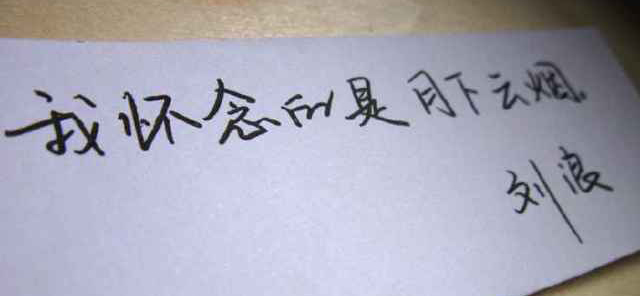 我怀念的是月下云烟.
刘浪